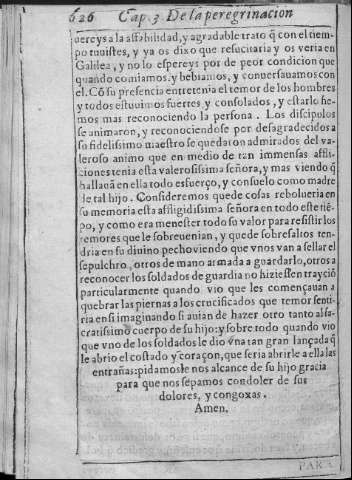 626 Cap. 3. De la peregrinacion
uereys a la affabilidad, y agradable trato q̃ con el tiem-
po tuuistes, y ya os dixo que resucitaria y os veria en
Galilea, y no lo espereys por de peor condicion que
quando comiamos y bebiamos, y conuersauamos con
el. Cõ su presencia entretenia el temor de los hombres
y todos estuuimos fuertes y consolados, y estarlo he-
mos mas reconociendo la persona. Los discipulos
se animaron, y reconociendose por desagradecidos a
so fidelissimo maestro se quedaron admirados del va-
leroso animo que en medio de tan immensas affli-
ctiones tenia esta valerosissima señora, y mas viendo q̃
hallauã en ella todo esfuerço, y consuelo como madre
de tal hijo. Consideremos que de cosas rebolueria en
su memoria esta affligidissima señora en todo este tiẽ-
po, y como era menester todo su valor para resistir los
temores que le sobreuenian, y que de sobresaltos ten-
dria en su diuino pecho viendo que vnos van a sellar el
sepulchro, otros de mano armada a guardarlo, otros a
reconocer los soldados de guardia no hiziessen trayciõ
particularmente quando vio que les començauan a
quebrar las piernas a los crucificados que temor senti-
ria en si imaginando si auian de hazer otro tanto al sa-
cratissimo cuerpo de su hijo: y sobre todo quando vio
que vno de los soldados le dio vna tan gran lançada q̃
le abrio el costado y coraçon, que seria abrirle a ella las
entrañas: pidamosle nos alcance de su hijo gracia
para que nos sepamos condoler de sus
dolores, y congoxas.
Amen.
PARA